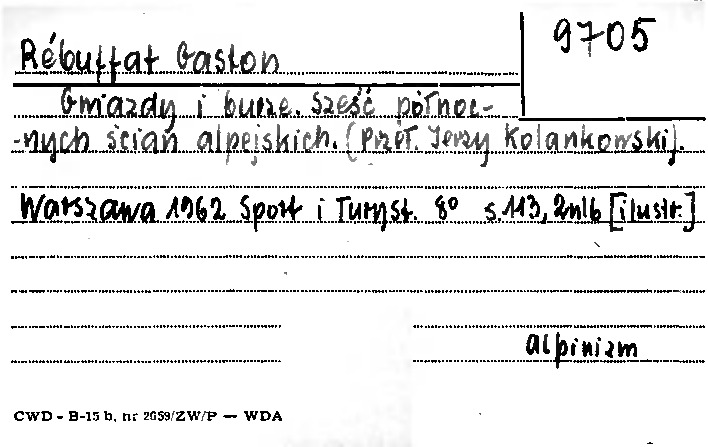 9705
Rébuffat Gaston
Gwiazdy i burze. Sześć północ-
-nych ścian alpejskich. (Przeł. Jerzy Kolankowski).
Warszawa 1962 Sport i Turyst. 8° s. 113, 2nlb [ilustr.]
alpinizm
CWD - B-15 b, nr 2659/ZW/P — WDA